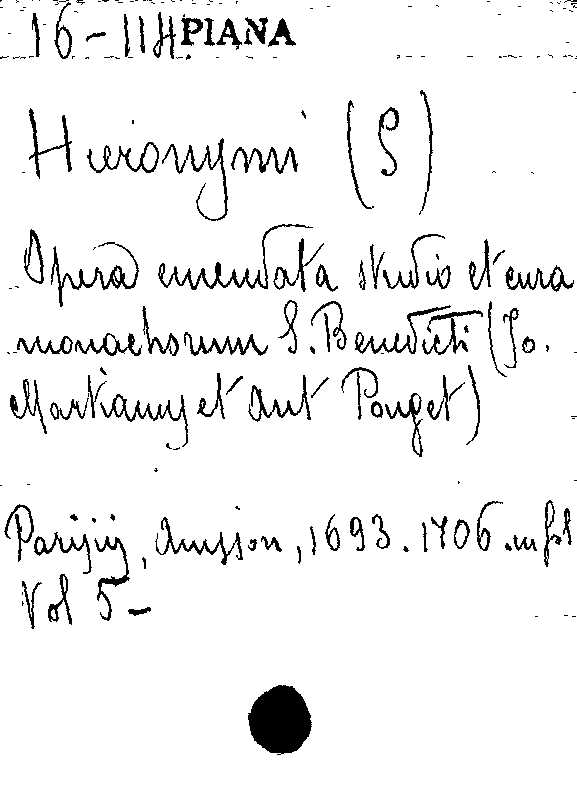 16-114 PIANA
Hieronymi (S)
Opera emendata studio et cura
monachorum S. Benedicti (Jo.
Martianay et Ant Pouget)
Parisiis, Anisson, 1693.1706.in fol
Vol 5-